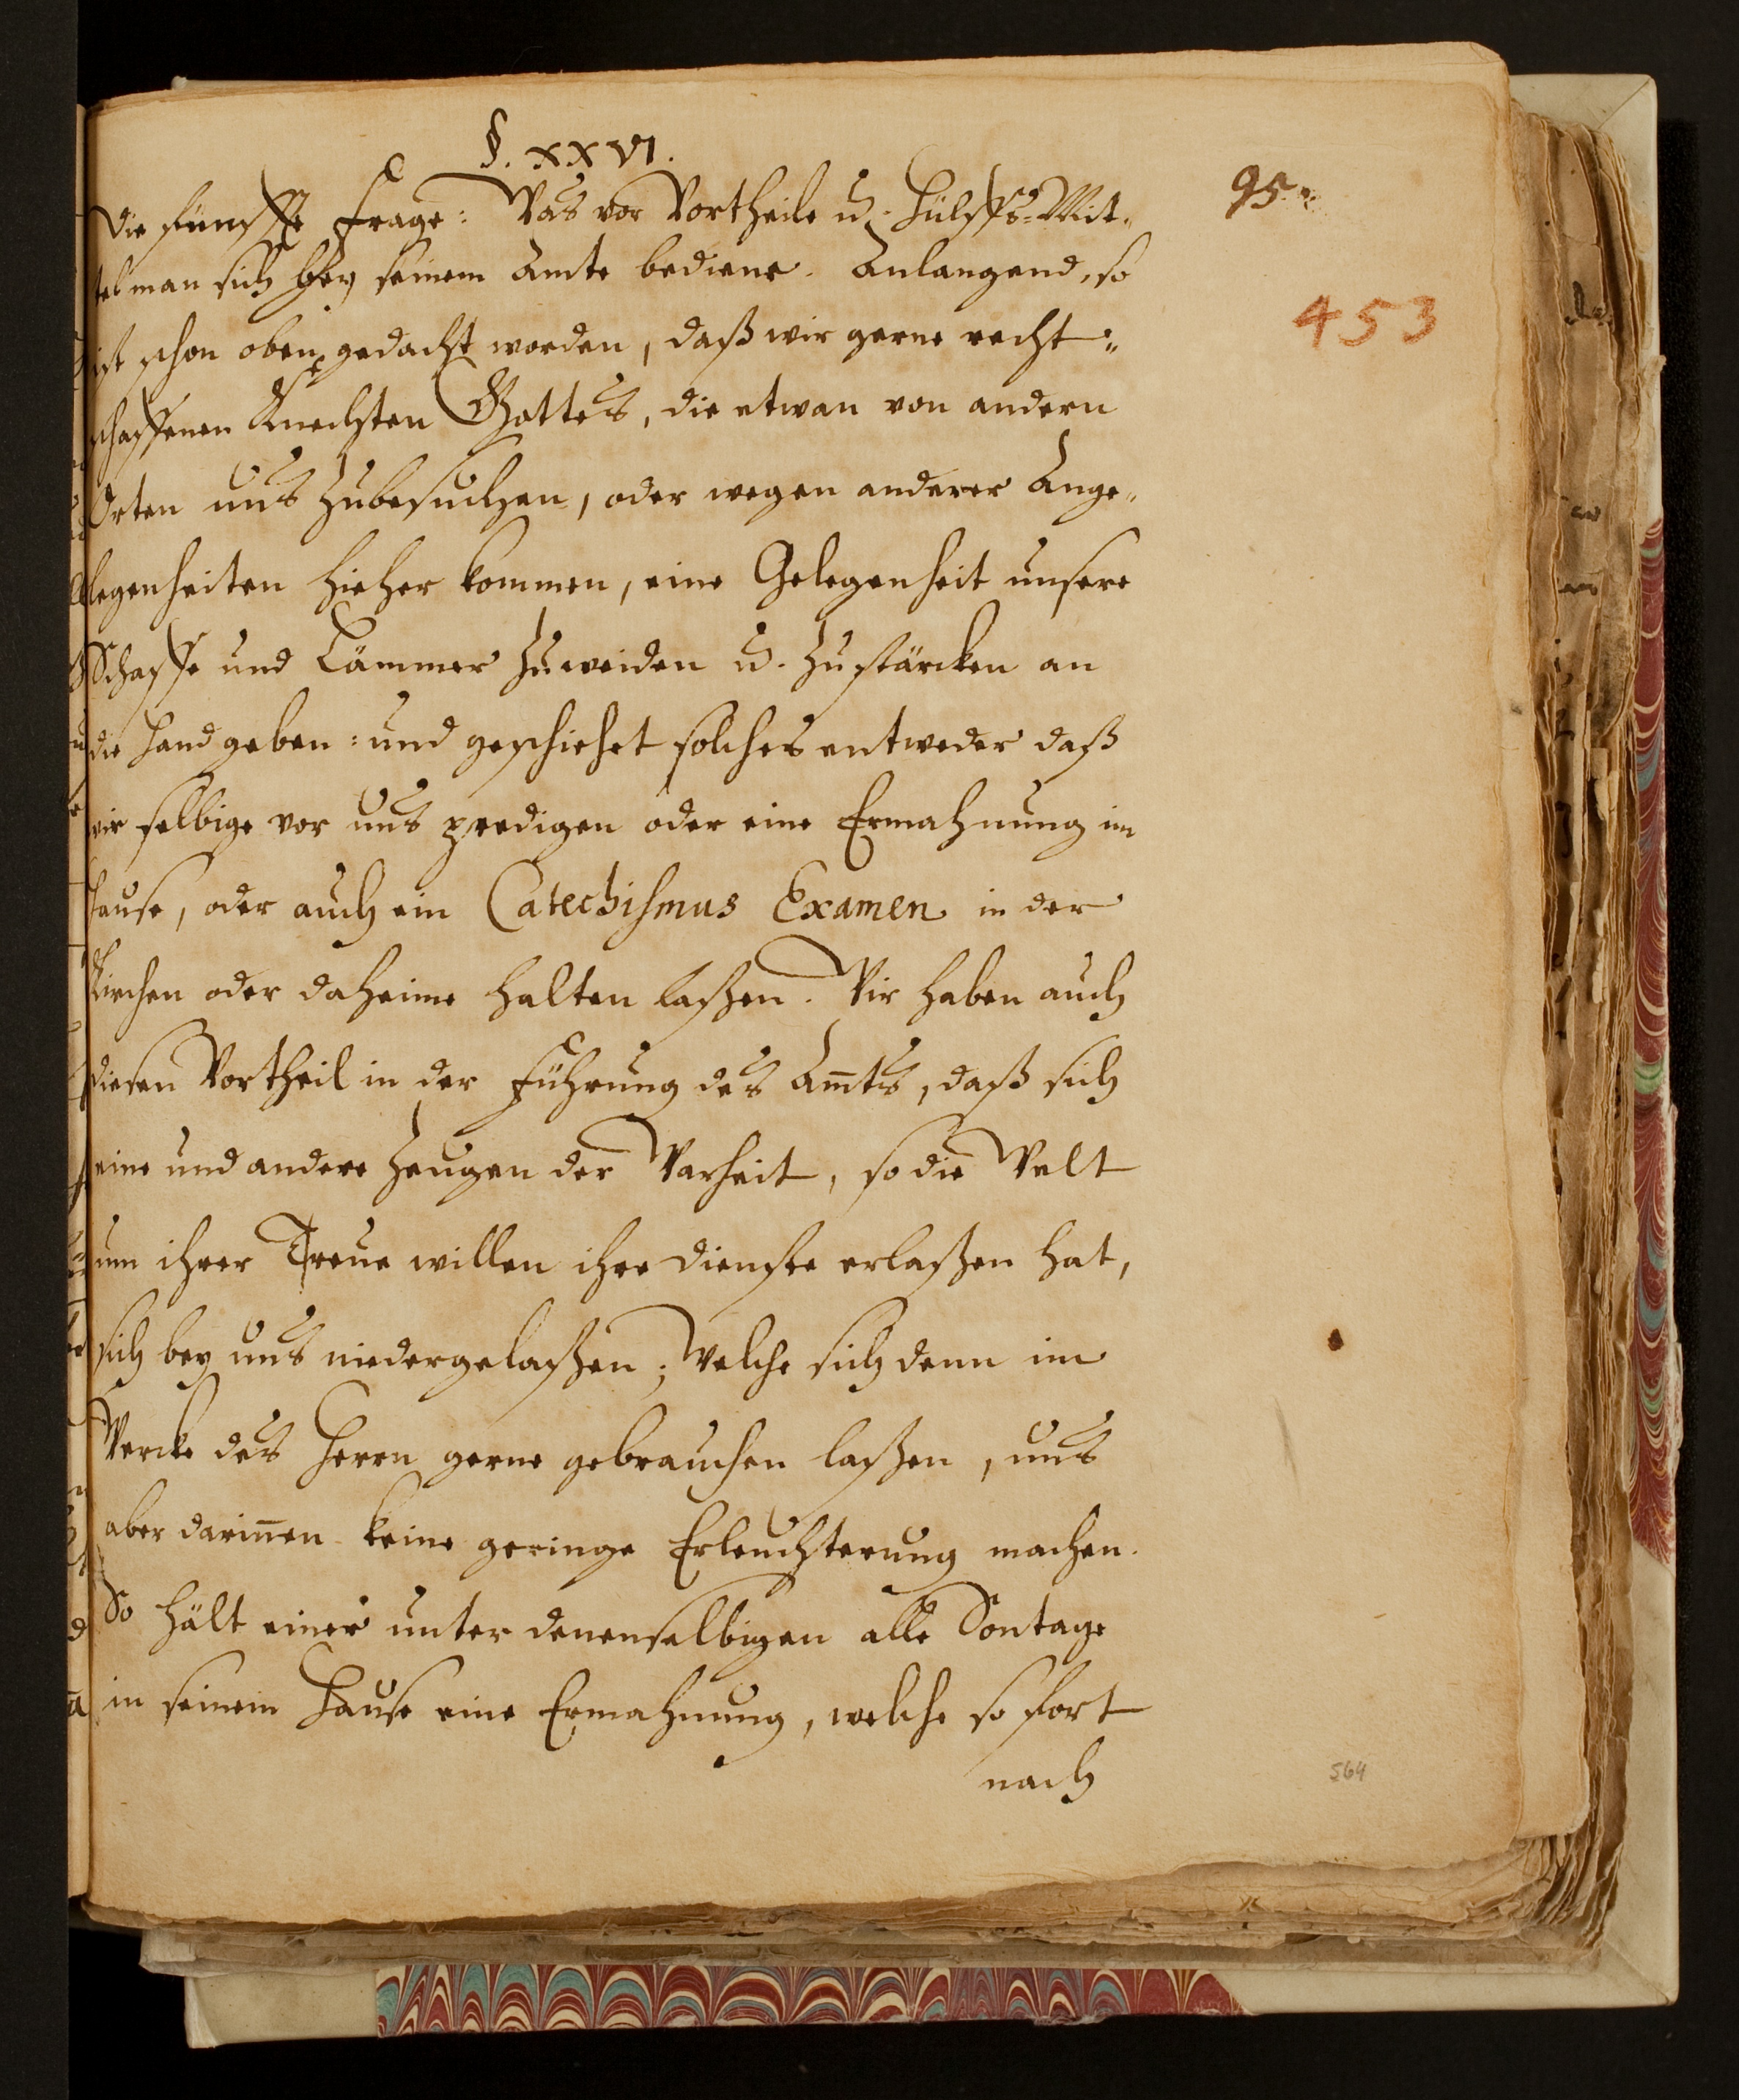 §. XXVI.
95.
Die fünffte Frage: Was vor Vortheile u. Hülffs-Mit-
tel man sich bey seinem Amte bediene. Anlangend, so
453
ist schon oben gedacht worden, daß wir gerne recht-
schaffenen Knechten Gottes, die etwan von andern
Orten uns zubesuchen, oder wegen anderer Ange-
legenheiten hieher kommen, eine Gelegenheit unsere
Schaffe und Lämmer zuweiden u. zustärcken an
die Hand geben: und geschiehet solches entweder daß
wir selbige vor uns predigen oder eine Ermahnung im
Hause, oder auch ein Catechismus Examen in der
Kirchen oder daheime halten laßen. Wir haben auch
diesen Vortheil in der Führung des Am̄ts, daß sich
eine und andere Zeugen der Warheit, so die Welt
um ihrer Treue willen ihre Dienste erlaßen hat,
sich bey uns niedergelaßen; Welche sich denn im
Wercke des Herrn gerne gebrauchen laßen, uns
aber darin̄en keine geringe Erleuchterung machen.
So hält einer unter denenselbigen alle Sontage
in seinem Hause eine Ermahnung, welche so fort
nach
564